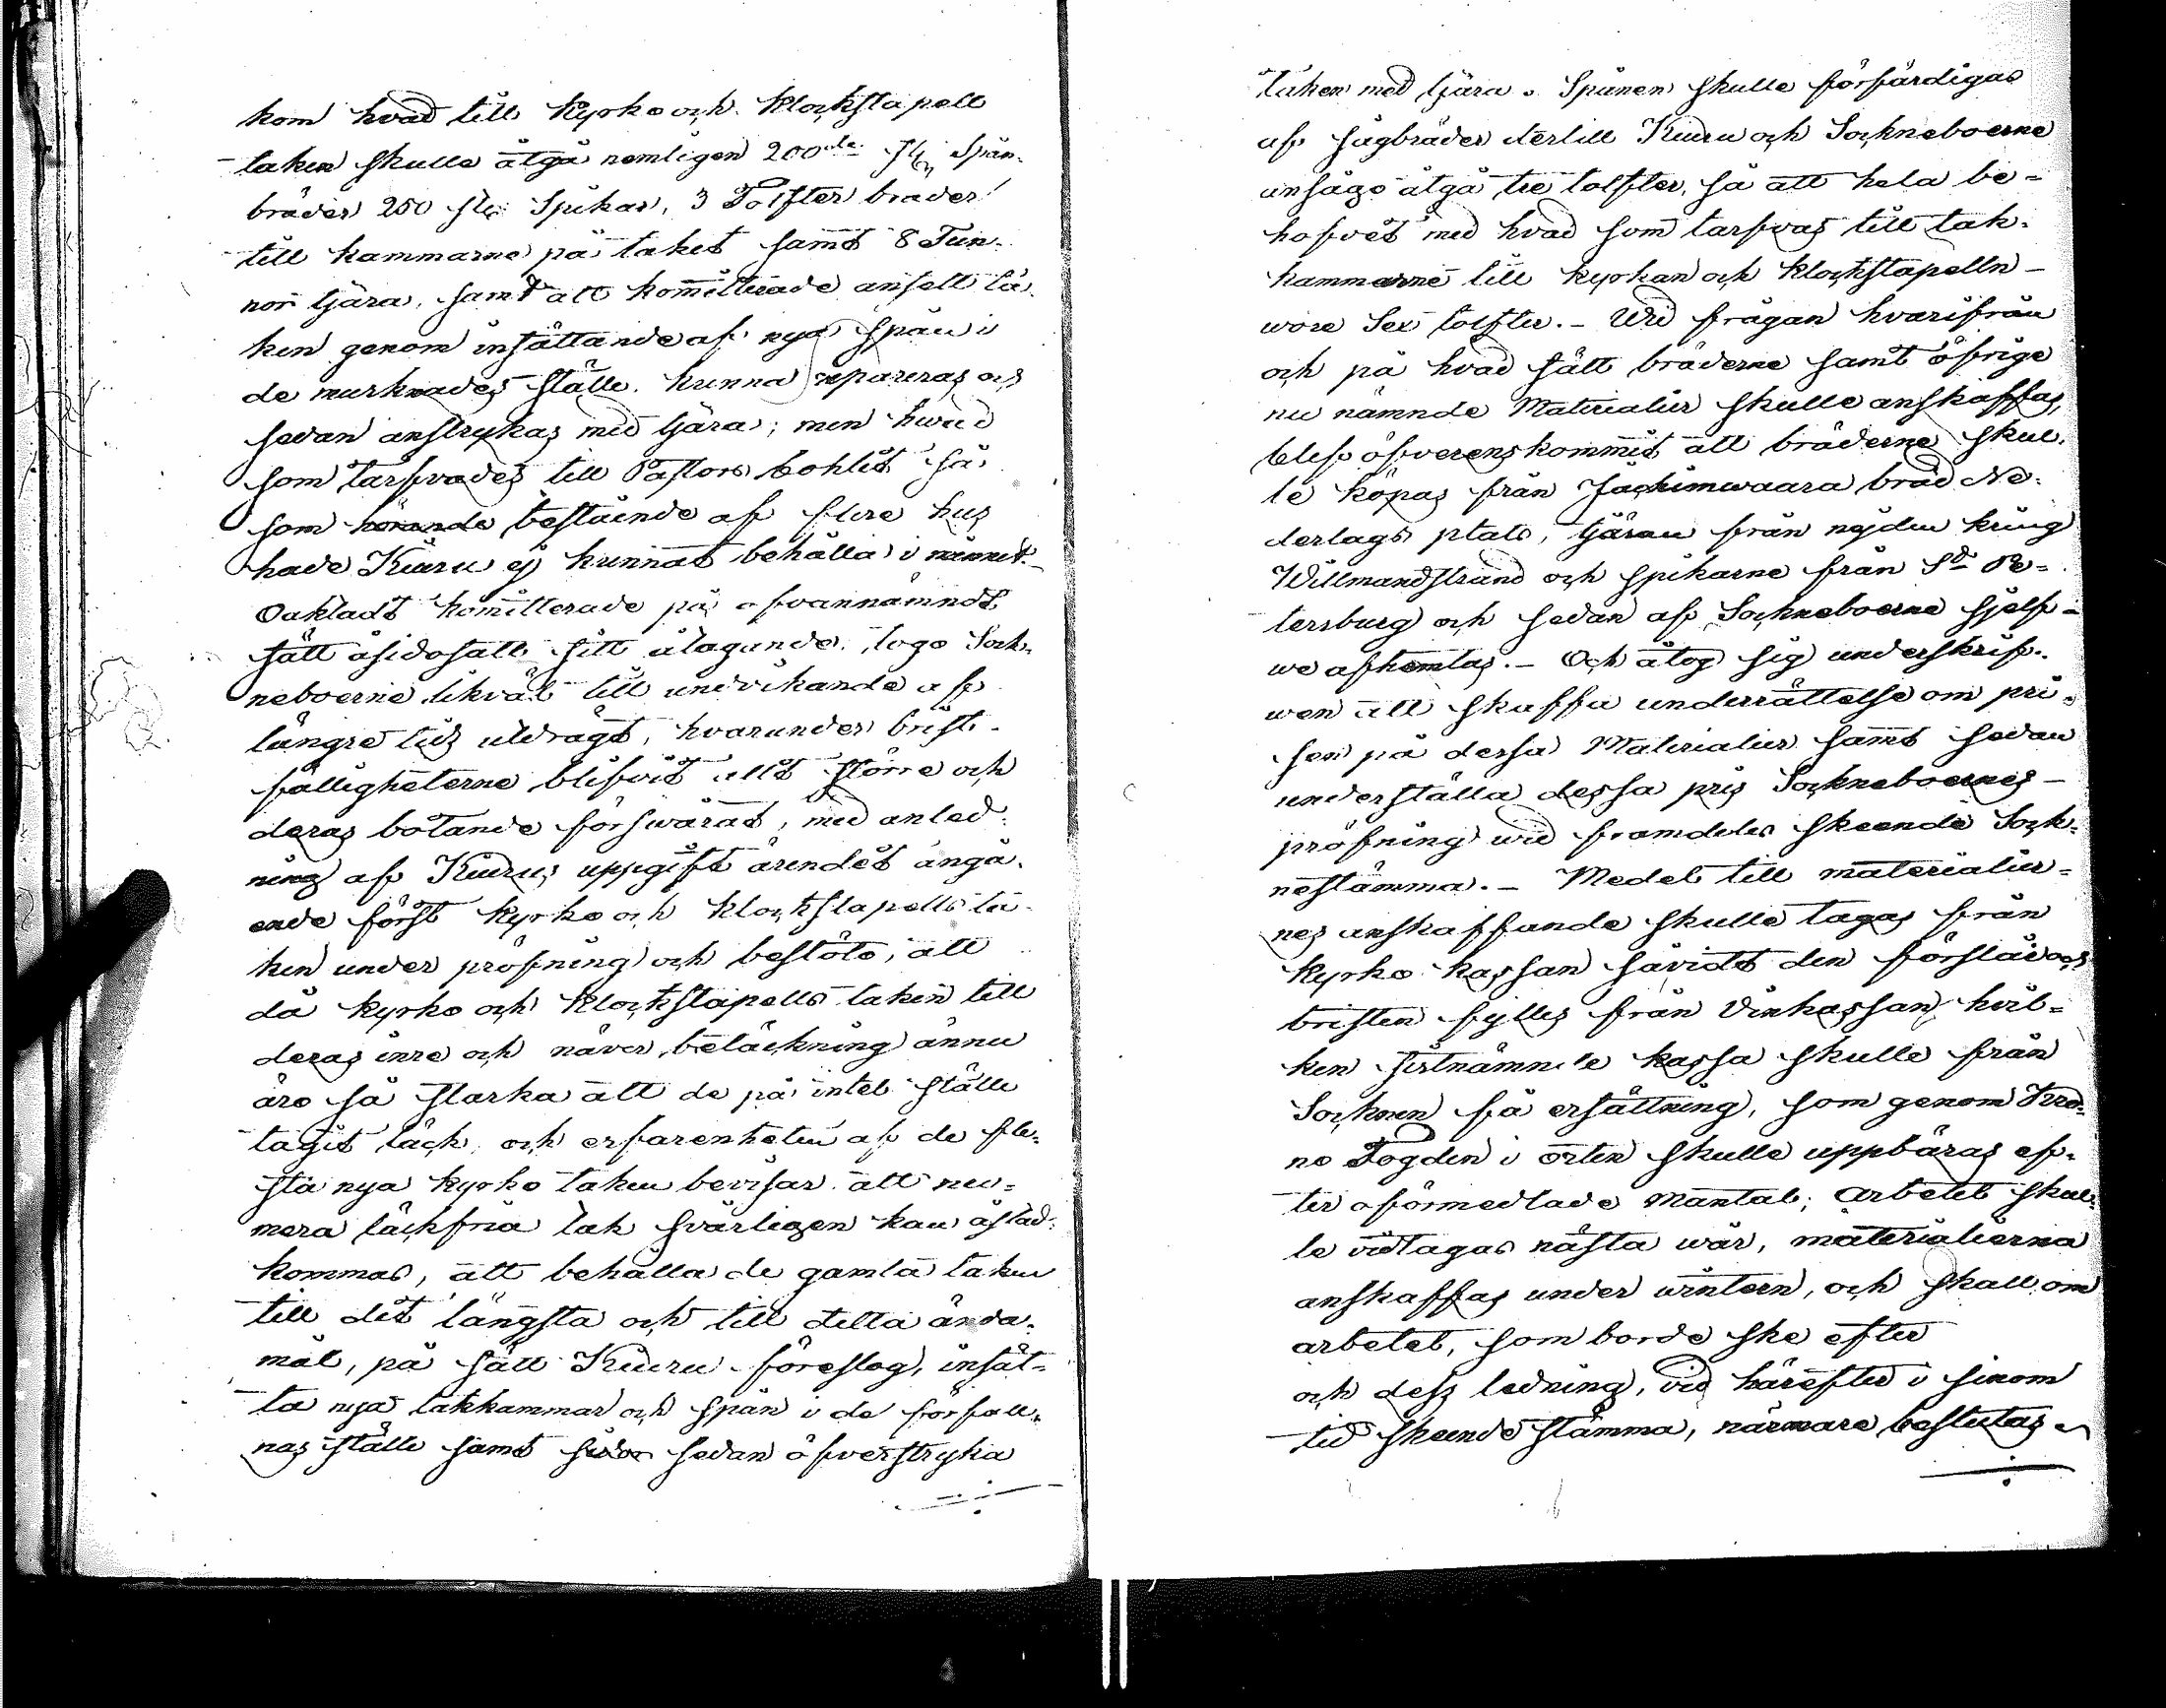 kom hvad till Kyrko och Klockstapell
taken skulle åtgå nemligen 200de st. Spån-
bräder 250 st. Spikar, 3 Tolfter bräder
till kammarne på taket samt 8 Tun-
nor tjära, samt att komitterade ansett ta-
ken genom insättande af nya spån i
de murknades ställe kunna repareras och
sedan anstrykas med tjära; men hwad
som tarfvades till Pastors bohlet så-
som hörande bestående af flere hus
hade Kiuru ej kunnat behålla i minnet.
Oaktadt komitterade på ofvannämndt
sätt åsidosatt sitt åliggande, togo Sock-
neboerne likväl till undvikande af
längre tids utdrägt, hvarunder brist-
fälligheterne blifvit allt större och
deras botande försvårat, med anled-
ning af Kiurus uppgift ärendet angå-
ende först kyrko och klockstapells ta-
ken under pröfning och beslöto, att
då kyrko och klockstapells taken till
deras inre och näver betäckning ännu
äro så starka att de på intet ställe
tagit läck och erfarenheten af de fle-
sta nya kyrko taken bevisar att nu-
mera läckfria tak svårligen kan åstad-
kommas, att behålla de gamla taken
till det längsta och till detta ända-
mål, på sätt Kiuru föreslog, insät-
ta nya takkammar och spån i de förfall-
nas ställe samt sedan öfverstryka
taken med tjära. Spånen skulle förfärdigas
af sågbräder dertill Kiuru och Sockneboerne
ansågo åtgå tre tolfter, så att hela be-
hofvet med hvad som tarfvas till tak-
kammarne till kyrkan och klockstapelln
wore Sex tolfter. - Wid frågan hvarifrån
och på hvad sätt bräderne samt öfrige
nu nämnde Materialier skulle anskaffas,
blef öfverenskommit att bräderne skul-
le köpas från Jackimwaara bräd Ne-
derlags plats, tjäran från nejden kring
Willmandstrand och spikarne från St Pe-
tersburg och sedan af Sockneboerne sjelf-
we afhemtas. - Och åtog sig underskrif-
wen att skaffa underrättelse om pri-
sen på dessa Materialier samt sedan
underställa dessa pris Sockneboernes
pröfning wid framdeles skeende Sock-
nestämma. - Medel till materialier-
nes anskaffande skulle tagas från
Kyrko kassan såvidt den förslår och
bristen fylles från Vinkassan hvil-
ken sistnämnde kassa skulle från
Socknen få ersättning, som genom Kro-
no Fogden i orten skulle uppbäras ef-
ter oförmedlade mantal; Arbetet skul-
le vidtagas nästa wår, materialierna
anskaffas under wintern, och skall om
arbetet, som borde ske efter
och dess ledning, vid härefter i sinom
tid skeende stämma, närmare beslutas